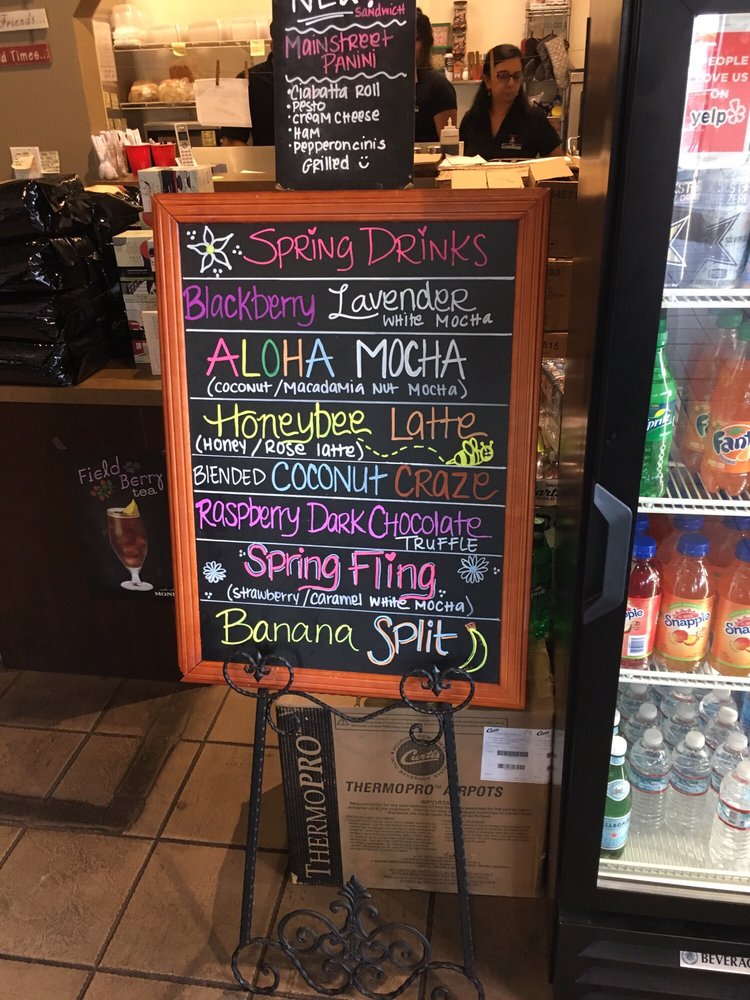 NEW!
SANDWICH
MAINSTREET
PANINI
•Ciabatta Roll
•PESTO
•CREAM CHEESE
•HAM
•PEPPERONCINIS
GRILLED
Friends...
d Times...
PEOPLE
LOVE US
ON
yelp
SPRING DRINKS
Blackberry LAVENDER
WHITE MOCHA
ALOHA MOCHA
(COCONUT/MACADAMIA NUT MOCHA)
Honeybee Latte
(HONEY/ROSE latte)
BLENDED COCONUT CRAZE
Raspberry Dark Chocolate
TRUFFLE
Spring Fling
(STRAWBERRY/CARAMEL WHITE MOCHA)
Banana Split
Field
Berry
tea
MONI
prite
Fanta
Snapple
Snapple
LLEGRI
Curtis
THERMOPRO™ AIRPOTS
THERMOPRO™
BEVERAG